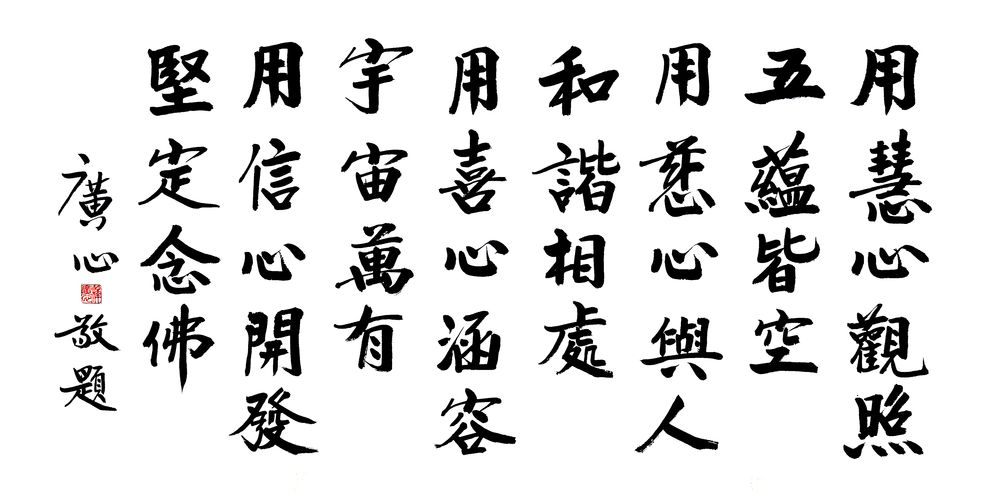 用慧心觀照
五蘊皆空
用慈心與人
和諧相處
用喜心涵容
宇宙萬有
用信心開發
堅定念佛
廣心敬題